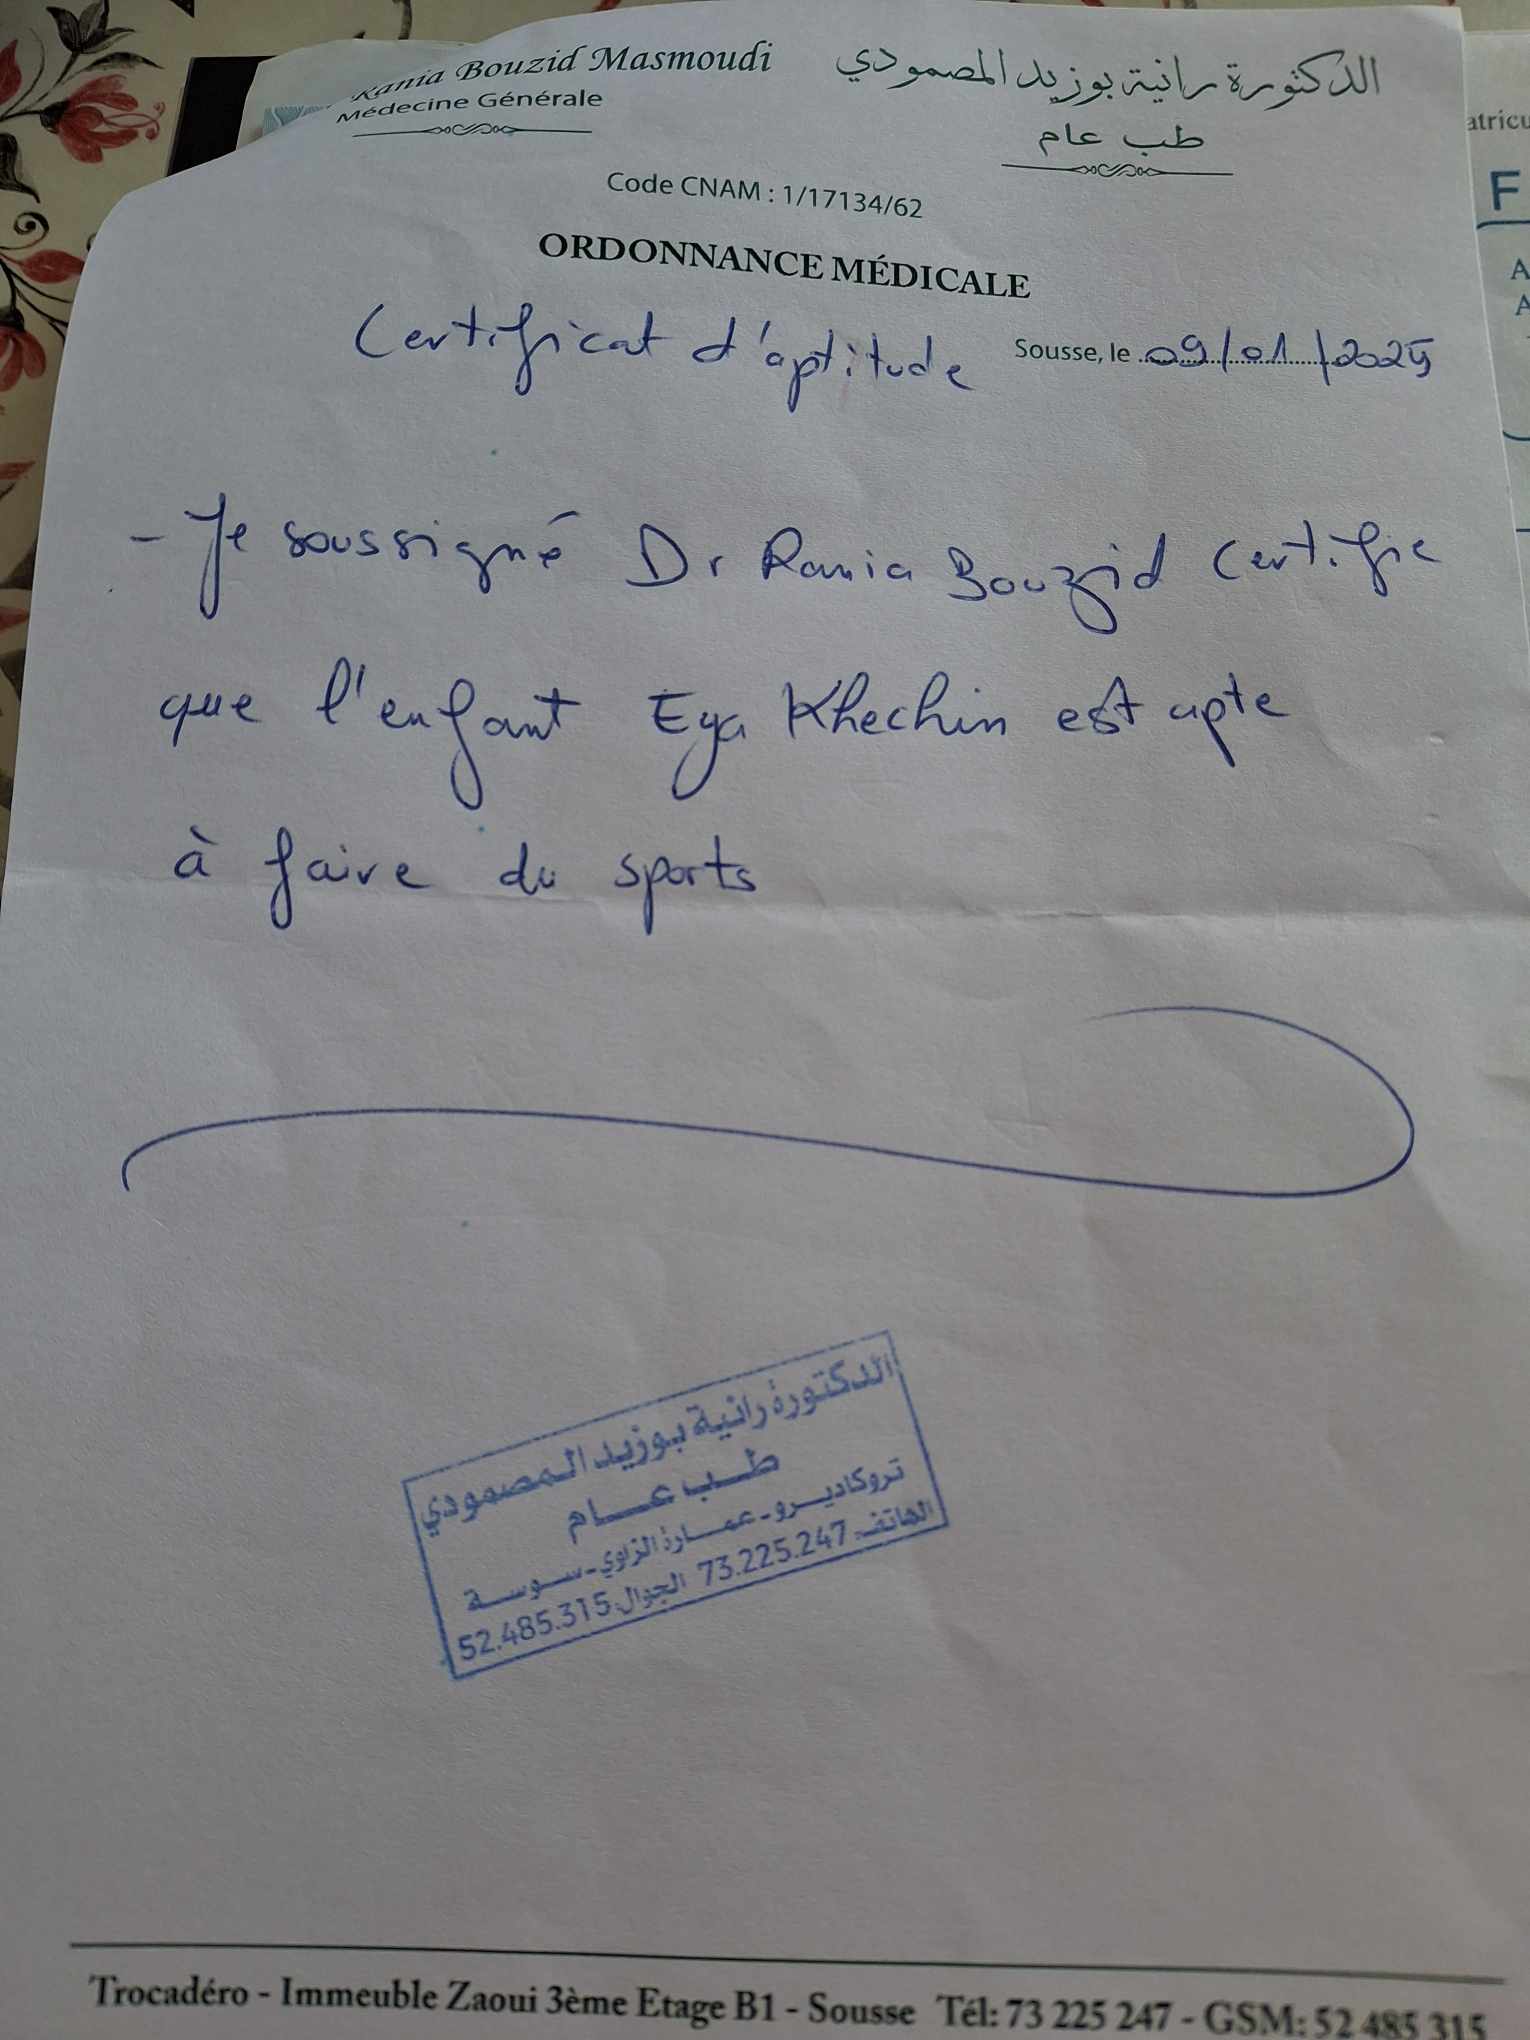 Rania Bouzid Masmoudi
الدكتورة رانية بوزيد المصمودي
Médecine Générale
طب عام
Code CNAM : 1/17134/62
ORDONNANCE MÉDICALE
Certificat d'aptitude
Sousse, le 09/01/2025
- Je soussigné Dr Rania Bouzid certifie
que l'enfant Eya Khechin est apte
à faire du sports
الدكتورة رانية بوزيد المصمودي
طب عام
تروكاديرو - عمارة الزاوي - سوسة
الهاتف: 73.225.247 الجوال: 52.485.315
Trocadéro - Immeuble Zaoui 3ème Etage B1 - Sousse Tél: 73 225 247 - GSM: 52 485 315
atricu
F
A
A